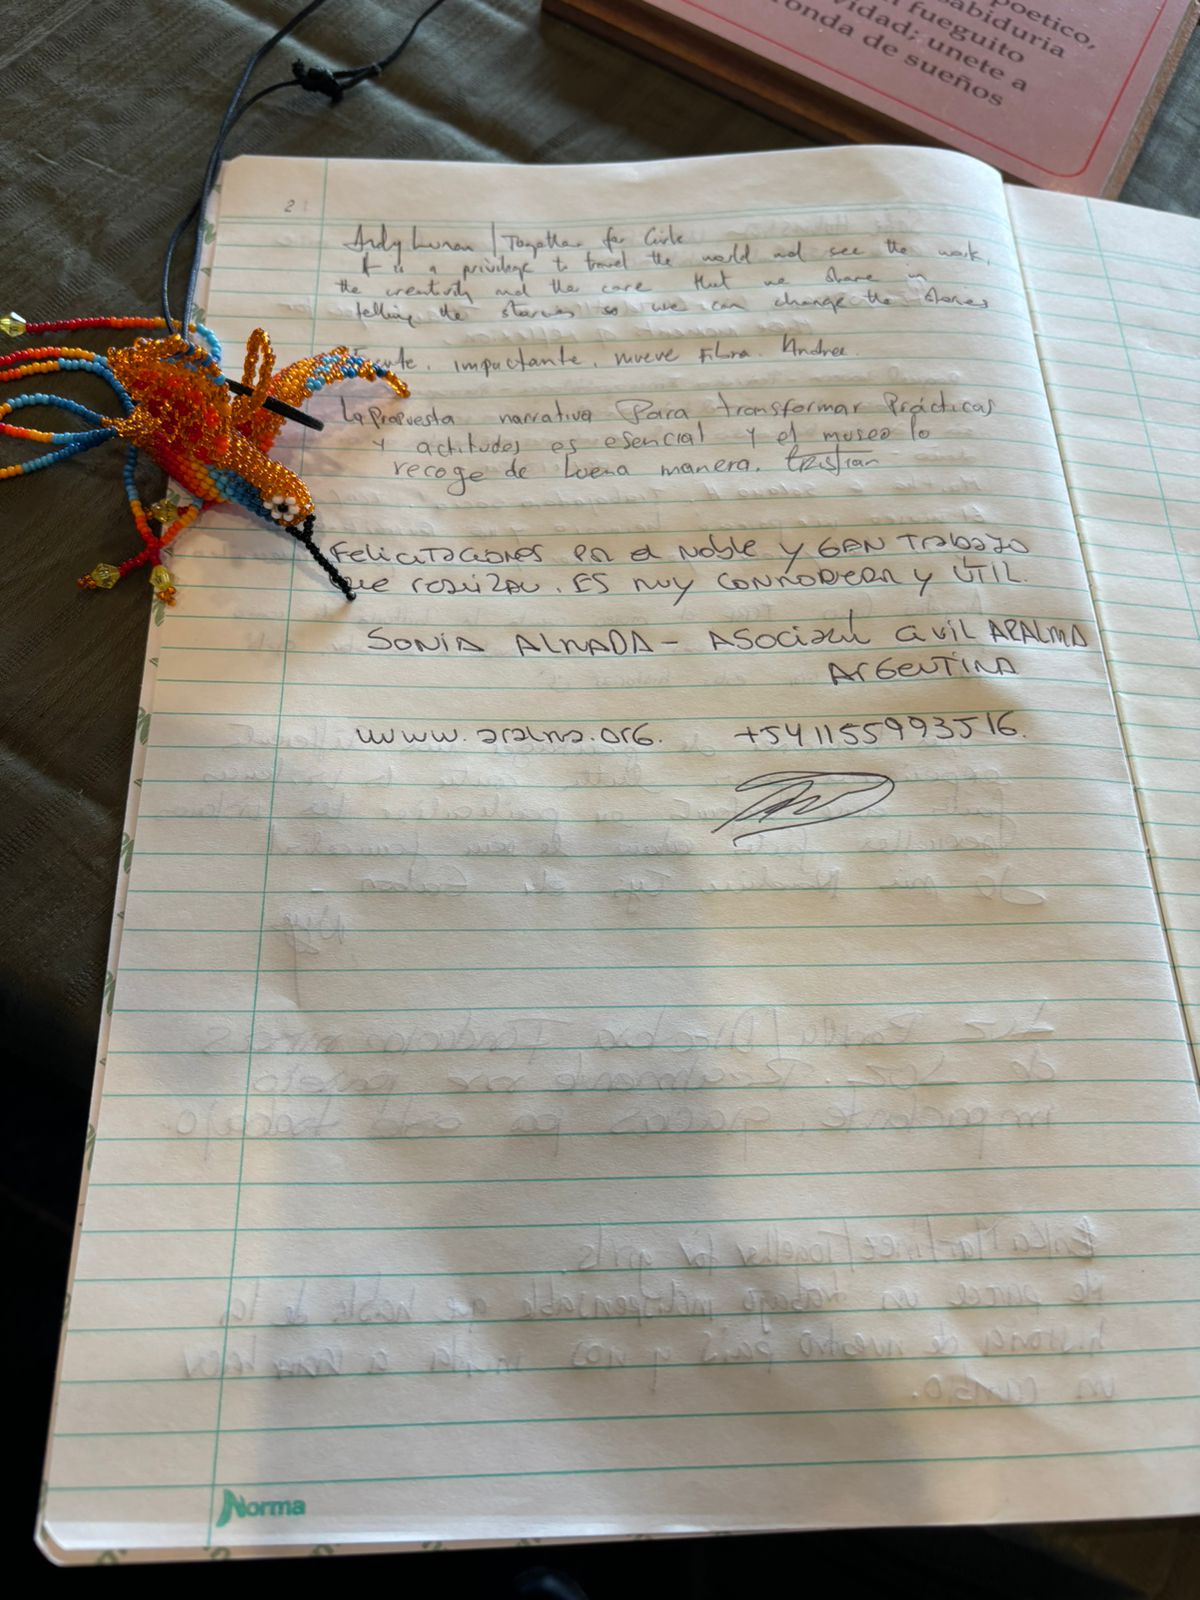 poetico,
sabiduria
fueguito
vidad; unete a
ronda de sueños
2
Andy | Together for Girls
It is a privilege to travel the world and see the work,
the creativity and the care that we share in
telling the stories so we can change the stories
impactante, mueve Fibra. Andrea.
La Propuesta narrativa Para transformar Prácticas
y actitudes es esencial y el museo lo
recoge de buena manera. Cristian
Felicitaciones en el Noble y GRAN Trabajo
que realizan. ES MUY CONMOVEDOR y ÚTIL.
SONIA ALMADA - ASOCIACIÓN CIVIL ARALMA
ARGENTINA
www.aralma.org. +541155993516.
Norma